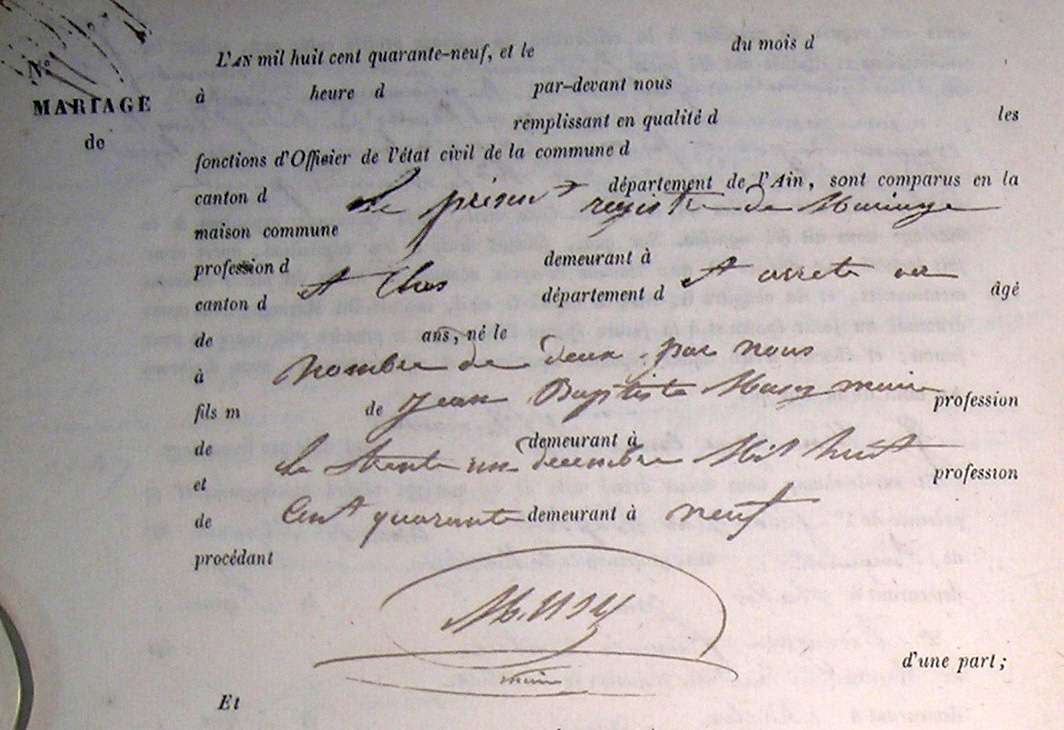 N°
MARIAGE
de
L'AN mil huit cent quarante-neuf, et le du mois d
à heure d par-devant nous
remplissant en qualité d les
fonctions d'Offisier de l'état civil de la commune d
canton d département de l'Ain, sont comparus en la
Le présent registre de Mariage
maison commune
profession d demeurant à
est Clos est arreté au
canton d département d âgé
de ans, né le
Nombre de deux par nous
à
Jean Baptiste Massy maire
fils m de profession
de demeurant à
Le trente un decembre Mil huit
et profession
Cent quarante neuf
de demeurant à
procédant
Massy
maire
d'une part;
Et